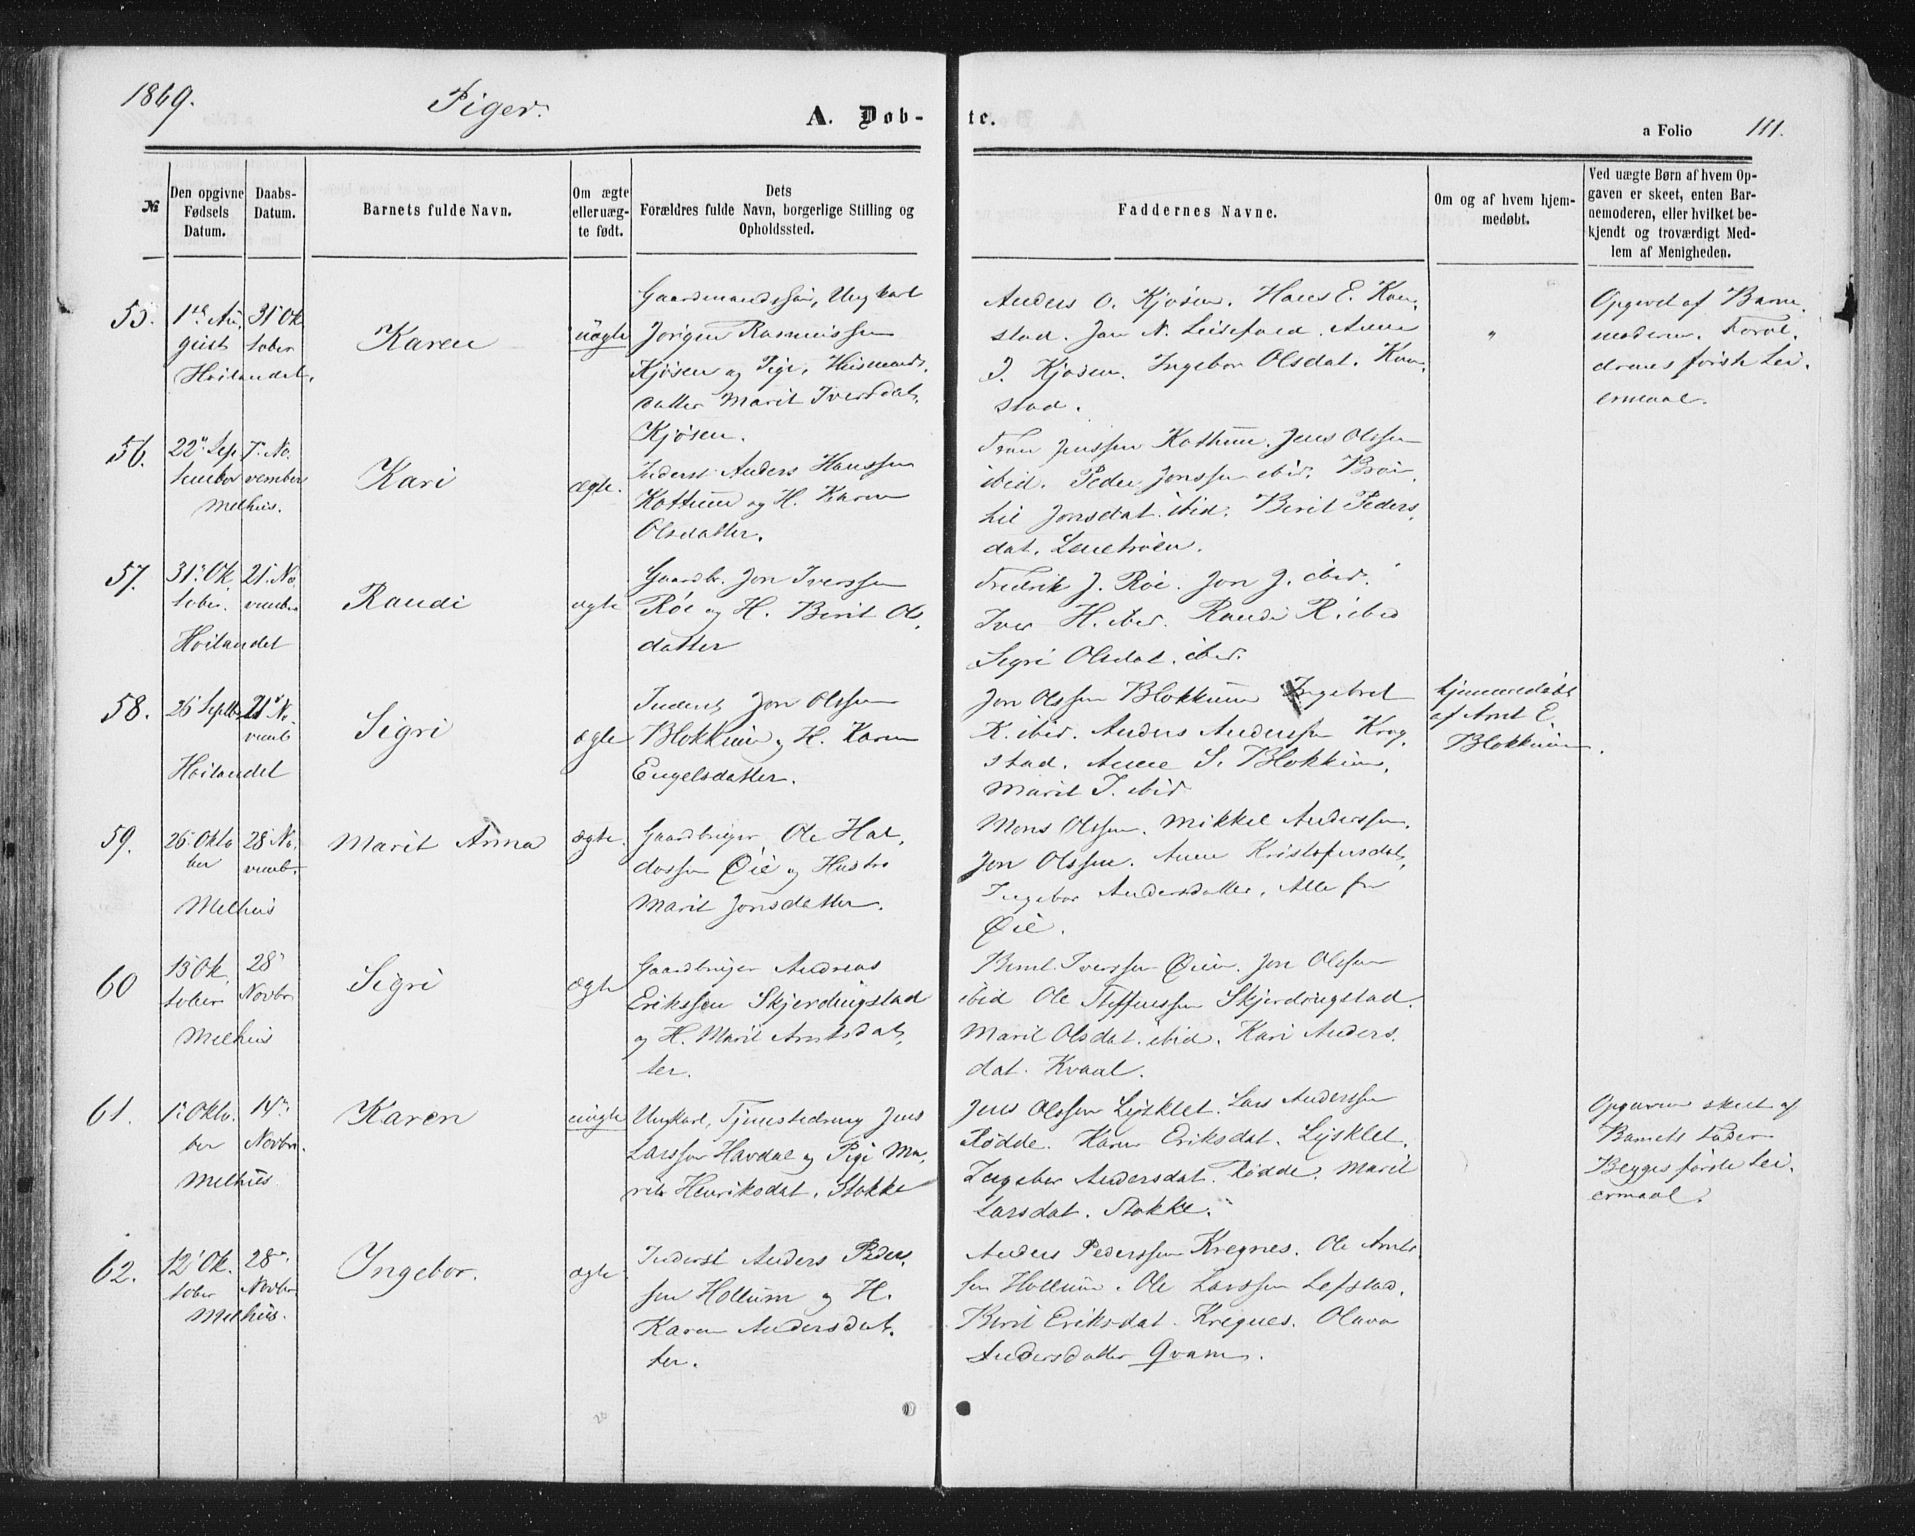 1869. Piger. A. Døb- te. a Folio 111.
№
Den opgivne Fødsels Datum.
Daabs-Datum.
Barnets fulde Navn.
Om ægte eller uæg-te født.
Dets
Forældres fulde Navn, borgerlige Stilling og
Opholdssted.
Faddernes Navne.
Om og af hvem hjem-
medøbt.
Ved uægte Børn af hvem Op-
gaven er skeet, enten Bar-
nemoderen, eller hvilket be-
kjendt og troværdigt Med-
lem af Menigheden.
55.
1ste Au
gust
Høilandet.
31 Ok
tober
Karen
uægte
Gaardmandssøn, Ungkarl
Jørgen Rasmussen
Kjøsen og Pige, Husmands
datter Marit Iversdat,
Kjøsen.
Anders O. Kjøsen. Hans E. Kan,
stad. Jon N. Anne
J. Kjøsen. Ingebor Olsdat. Kan,
stad.
"
Opgivet af Barne
moderen. Foræl,
drenes første Lei,
ermaal.
56.
22 Sep
tember
Melhus.
7 No.
vember
Kari
ægte.
Inderst Anders Hanssen
Kattum og H. Karen
Olsdatter.
Jenssen Kattum. Jens Olssen
ibid. Peder Jonssen ibid.
Jonsdat. ibid. Berit Peders,
dat.
57.
31 Ok
tober.
Høilandet
21 No
vember
Randi
ægte
Gaardbr. Jon Iverssen
Røe og H. Berit Ols,
datter
Fredrik J. Røe. Jon J. ibid.
Iver H. ibid. Randi R. ibid
Sigri Olsdat. ibid.
58.
26 Septbr
Høilandet
21 No.
vemb
Sigri
ægte
Inderst Jon Olssen
Blokkum og H. Karen
Engelsdatter.
Jon Olssen Blokkum Ingebret
K. ibid. Anders Anderssen Krog,
stad. Anne S. Blokkum,
Marit J. ibid
hjemmedøbt
af Arnt E.
Blokkum.
59.
26 Okto
ber
Melhus
28 No,
vemb.
Marit Anna
ægte.
Gaardbruger Ole Hal,
dossen Øie og Hustru
Marit Jonsdatter.
Mons Olssen. Mikkel Anderssen,
Jon Olssen. Anne Kristofersdat,
Ingebor Andersdatter, Alle fra
Øie.
60
13 Ok,
tober
Melhus
28
Novbr.
Sigri
ægte
Gaardbruger Andreas
Erikssen Skjerdingstad
og H. Marit Arntsdat,
ter.
Bernt Iverssen Øien. Jon Olssen
ibid Ole Steffenssen Skjerdingstad.
Marit Olsdat. ibid. Kari Anders,
dat. Kvaal.
61.
1 Okto.
ber
Melhus
14
Novbr.
Karen
uægte
Ungkarl, Tjenestedreng Jens
Larssen Havdal og Pige Ma,
rit Henriksdat. Stokke
Jens Olssen Lysklet. Lars Anderssen
Rødde. Karen Eriksdat. Lysklet,
Ingebor Andersdat. Rødde, Marit
Larsdat. Stokke.
Opgaven skeet af
Barnets Fader
Begges første Lei,
ermaal.
62.
12 Ok.
tober
Melhus.
28
Novbr
Ingebor.
ægte
Inderst Anders Peders,
sen Hollum og H.
Karen Andersdat,
ter.
Anders Pederssen Kregnes. Ole Arnts
sen Hollum. Ole Larssen Lefstad,
Berit Eriksdat. Kregnes. Olava
Andersdatter Qvam.